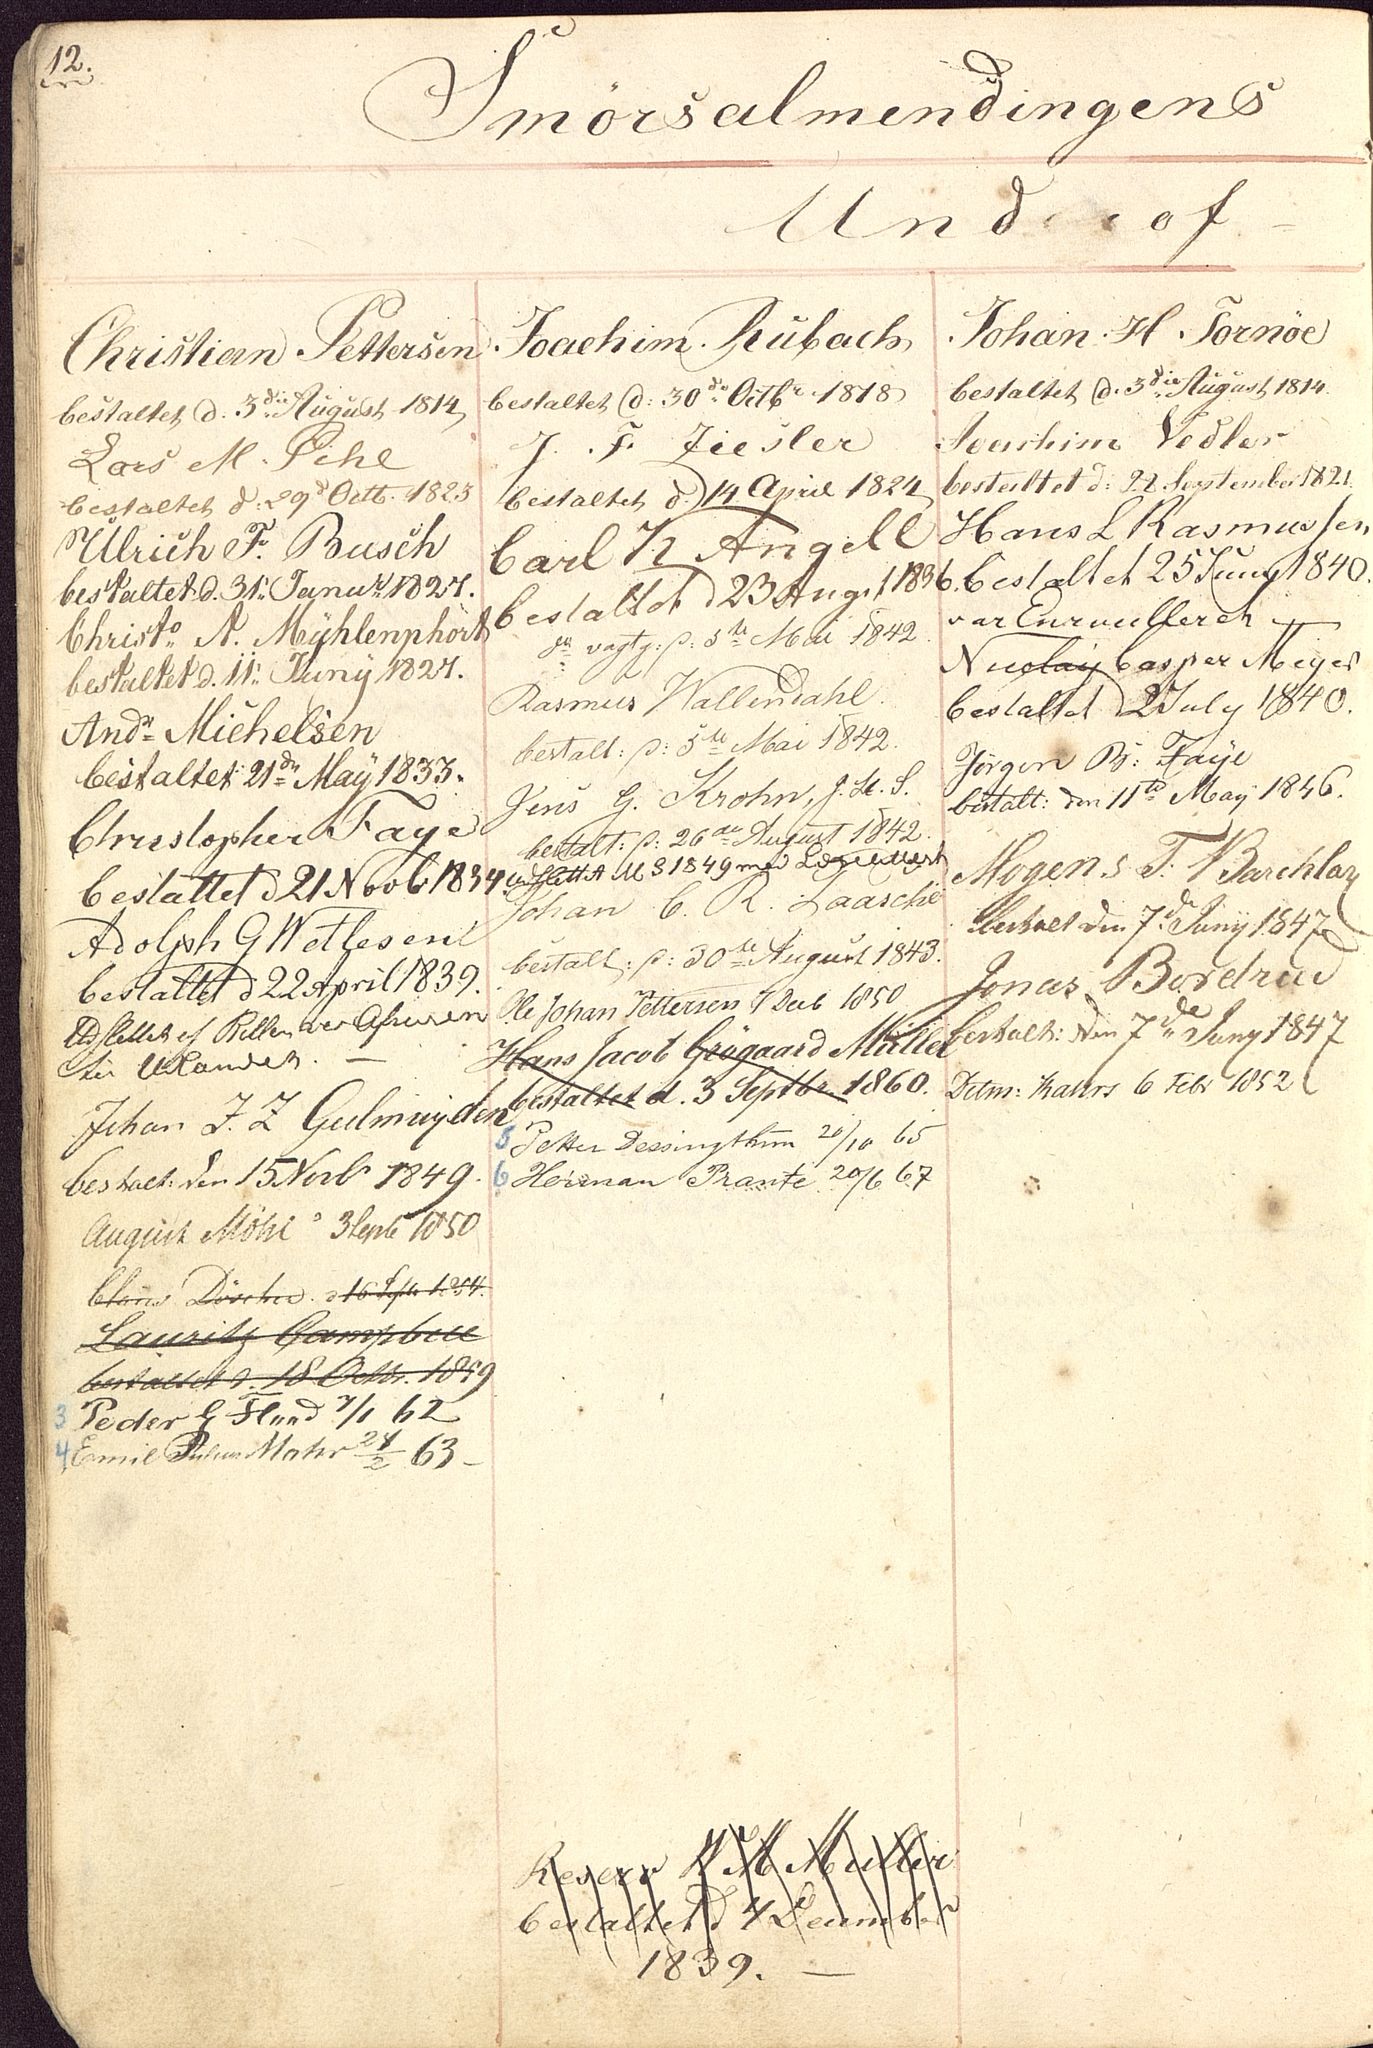 12.
Smörsalmendingens
Und of -
Christian Pettersen
bestaltet d. 3die August 1814
Lars M. Pihl
bestaltet d. 29d Octb. 1823
Ulrich F. Busch
bestaltet d. 31. Januar 1827.
Christo A. Mÿhlenphort
bestaltet d. 11. Junÿ 1827.
Andr Michelsen
bestaltet 21de Maÿ 1833.
Christopher Faye
bestaltet d 21 Novb 1834
Adolph G Wetlesen
bestaltet d 22 April 1839.
Udslettet af Rullen ved Afreisen
til Udlandet. —
Johan F. Z Gulmuyden
bestalt: den 15 Novbr 1849.
August Möhl 3 Septb 1850
Claus Döscher d 16 Sept 1854.
Lauritz Campbell
bestaltet d. 18 Octbr. 1859
3 Peder G Flood 7/1 62
4 Emil Julius Mohr 24/2 63 -
Joachim Rubach
bestaltet d: 30de Octbr 1818
J. F. Ziesler
bestaltet d. 14 April 1824
Carl K Angell
bestaltet d 23 August 1836.
p: 5te Mai 1842
Rasmus Wallendahl
bestalt: p: 5te Mai 1842.
Jens G. Krohn, J. H. S.
bestalt: p: 26de August 1842.
udslettet 1849 med
Johan C. R. Laasche
bestalt: p: 30te August 1843.
Ole Johan Pettersen 7 Decb 1850
Hans Jacob Grøgaard Müller
bestaltet d. 3 Septbr 1860.
5 Petter Dessingthun 20/10 65
6 Herman Prante 20/6 67
Reserv W M Müller
bestaltet d 4 December
1839. —
Johan H Tornöe
bestaltet d. 3die August 1814.
Joachim Vedler
bestaltet d: 22 September 1821.
Hans L Rasmussen
bestaltet 25 Juny 1840.
var Enrulleret —
Nicolaij Casper Meyer
bestaltet d 2 July 1840.
Jörgen B: Faye
bestalt: den 11te May 1846.
Mogens T. Barchlay
Bestalt den 7de Junij 1847
Jonas Bordrud
bestalt: den 7de Juny 1847
Detm: Kahrs 6 Febr 1852